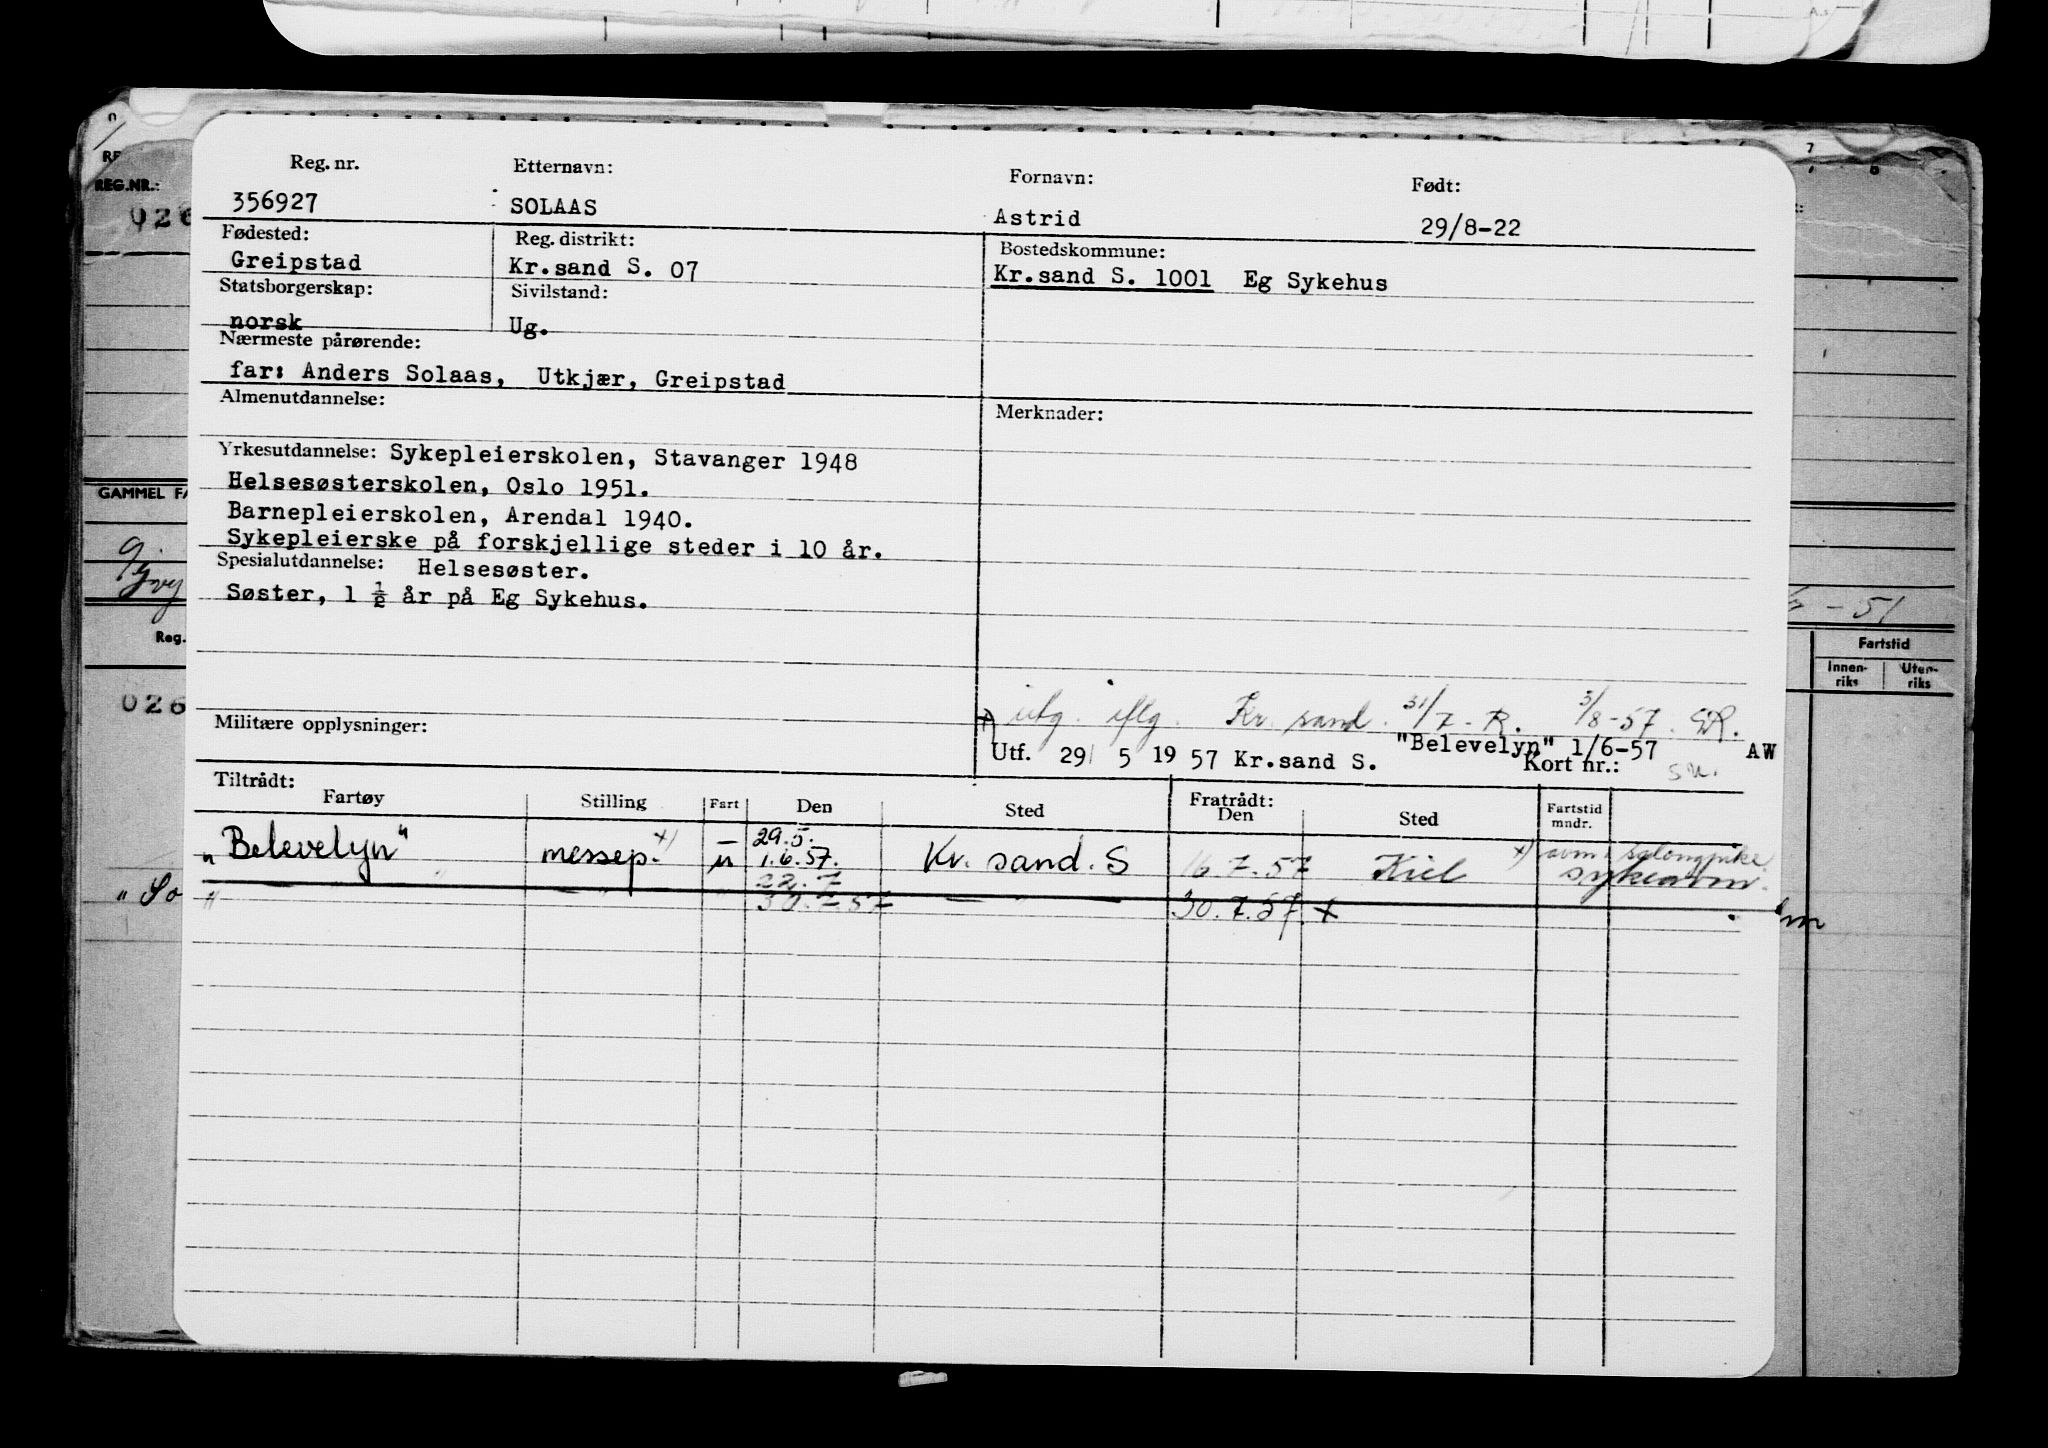 REG.NR.:
026
GAMMEL FA
Reg.
026
" So
- 51
Fartstid
Innen-
riks
Uten-
riks
Reg. nr. Etternavn: Fornavn: Født:
356927 SOLAAS Astrid 29/8-22
Fødested: Reg. distrikt: Bostedskommune:
Greipstad Kr.sand S. 07 Kr.sand S. 1001 Eg Sykehus
Statsborgerskap: Sivilstand:
norsk Ug.
Nærmeste pårørende:
far: Anders Solaas, Utkjær, Greipstad
Almenutdannelse: Merknader:
Yrkesutdannelse: Sykepleierskolen, Stavanger 1948
Helsesøsterskolen, Oslo 1951.
Barnepleierskolen, Arendal 1940.
Sykepleierske på forskjellige steder i 10 år.
Spesialutdannelse: Helsesøster.
Søster, 1 ½ år på Eg Sykehus.
Militære opplysninger:
+) utg. iflg. Kr. sand. 31/7 - R. 3/8-57. ER.
"Belevelyn" 1/6-57 AW
Utf. 29/ 5 19 57 Kr.sand S. Kort nr.:
Tiltrådt: Fratrådt:
Fartøy Stilling Fart Den Sted Den Sted Fartstid mndr.
"Belevelyn" messep. +) — 29.5.
u 1.6.57. Kr. sand. S 16.7.57 Kiel +) avm. salongpike
sykeavm.
" — " — — " — 22.7
30.7.57 — " — 30.7.57. +